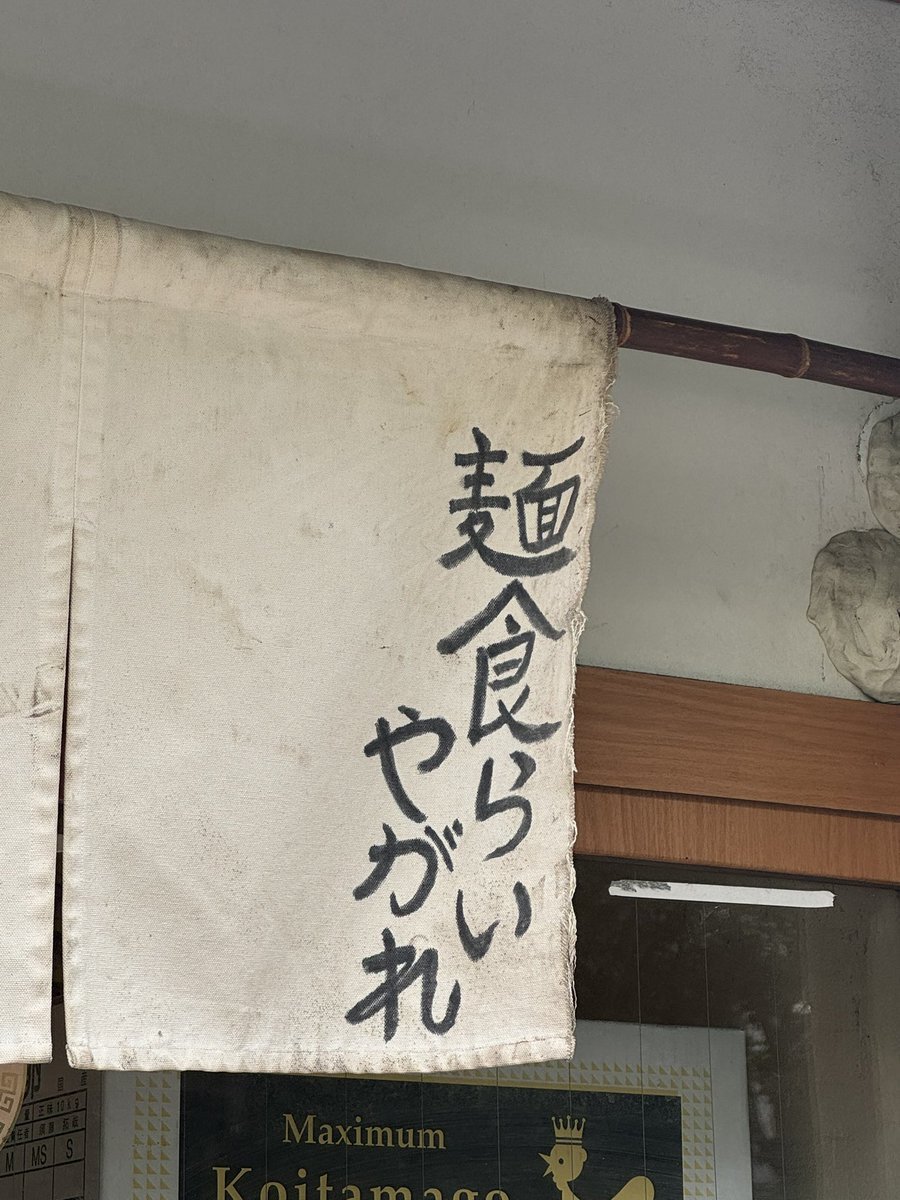 麺食らい
やがれ
Maximum
Koitamago
正味10kg
M MS S